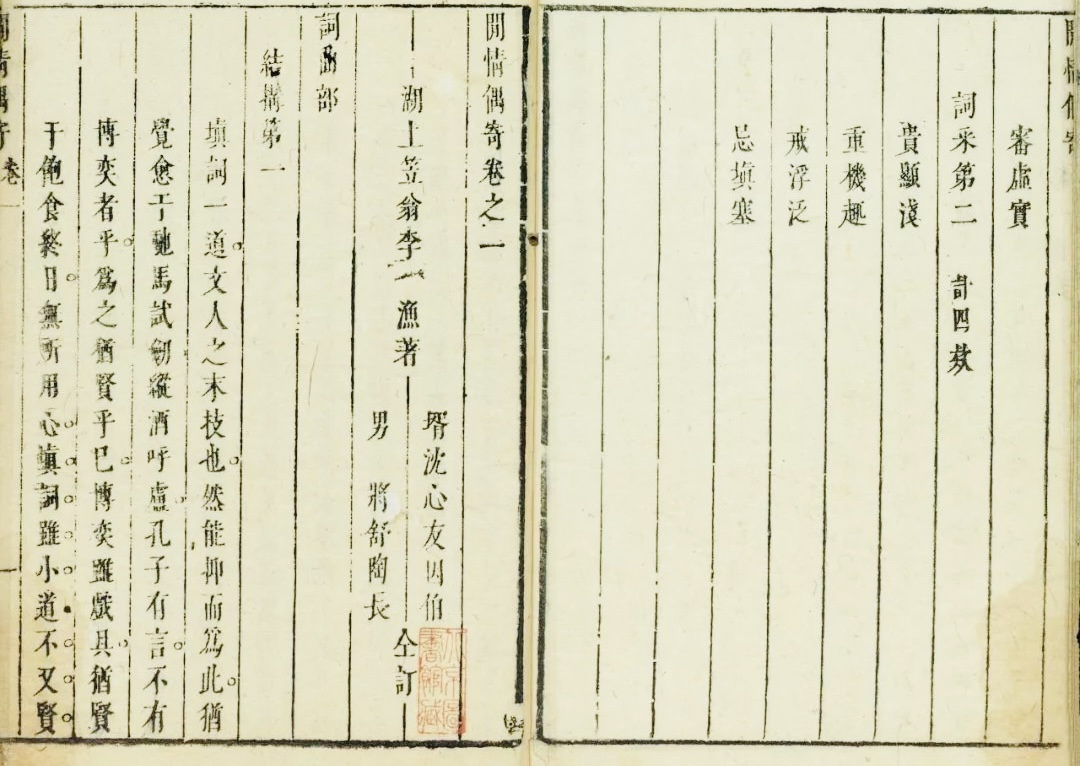 閒情偶寄
審虛實
詞采第二 計四款
貴顯淺
重機趣
戒浮泛
忌塡塞
閒情偶寄卷之一
湖上笠翁李漁著
壻沈心友因伯
男 將舒陶長
仝訂
詞曲部
結搆第一
塡詞一道文人之末技也然能抑而爲此猶
覺愈于馳馬試劒縱酒呼盧孔子有言不有
博奕者乎爲之猶賢乎已博奕雖戲具猶賢
于飽食終日無所用心塡詞雖小道不又賢
閒情偶寄 卷一
一